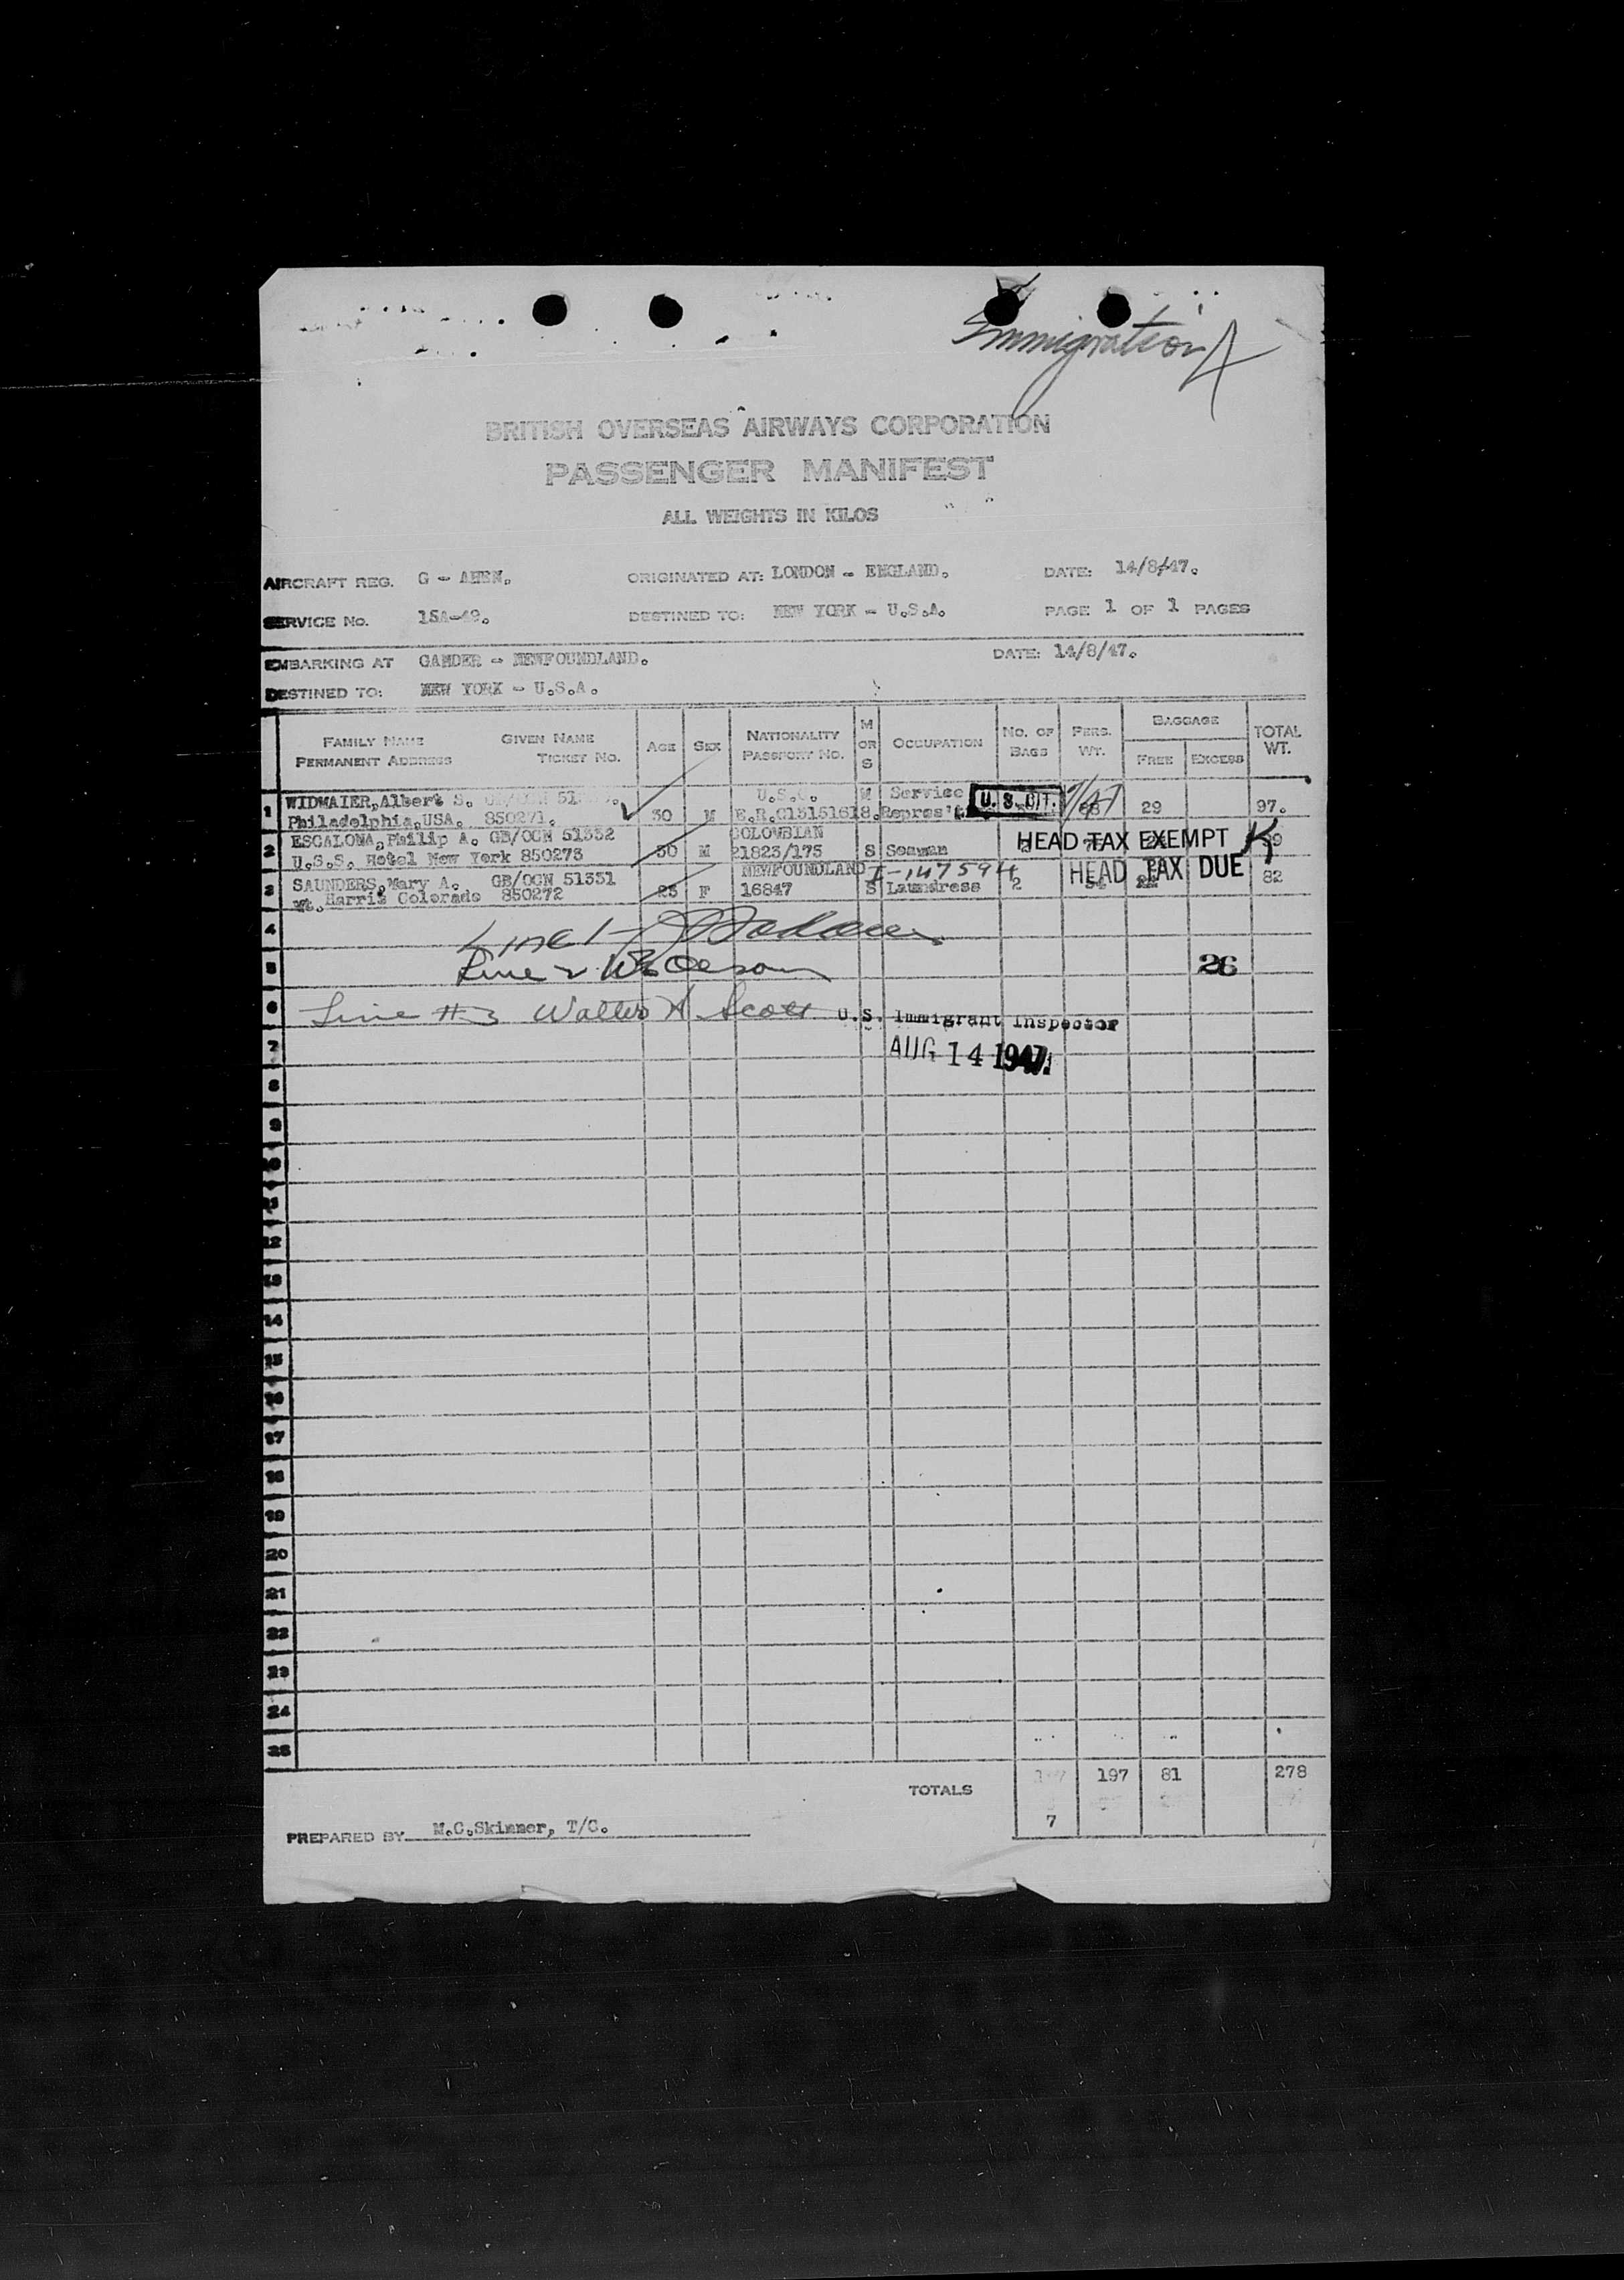 Immigration
BRITISH OVERSEAS AIRWAYS CORPORATION
PASSENGER MANIFEST
ALL WEIGHTS IN KILOS
AIRCRAFT REG. G - AHEN. ORIGINATED AT: LONDON - ENGLAND. DATE: 14/8/47.
SERVICE No. 15A-49. DESTINED TO: NEW YORK - U.S.A. PAGE 1 OF 1 PAGES
EMBARKING AT GANDER - NEWFOUNDLAND. DATE: 14/8/47.
DESTINED TO: NEW YORK - U.S.A.
FAMILY NAME GIVEN NAME AGE SEX NATIONALITY M OR S OCCUPATION NO. OF BAGS PERS. WT. BAGGAGE TOTAL WT.
PERMANENT ADDRESS TICKET NO. PASSPORT NO. FREE EXCESS
1 WIDMAIER, Albert S. U.S.C. M Service U.S. CIT.
Philadelphia, USA. 850271. 30 M E.R.C13151618. Repres't 29 97.
2 ESCALONA, Philip A. GB/OCN 51332 COLOMBIAN HEAD TAX EXEMPT
U.S.S. Hotel New York 850273 30 M 21823/175 S Seaman
3 SAUNDERS, Mary A. GB/OCN 51331 NEWFOUNDLAND I-147594 HEAD TAX DUE
Mt. Harris Colorado 850272 25 F 16847 S Laundress 2 82
4 Line 1
5 Line 2 26
6 Line #3 Walter A Scott U.S. Immigrant Inspector
7 AUG 14 1947
8
9
10
11
12
13
14
15
16
17
18
19
20
21
22
23
24
25
TOTALS 197 81 278
7
PREPARED BY M.C.Skinner, T/C.